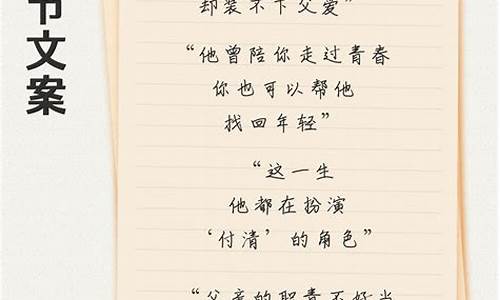 节文案
却装不下父爱”
“他曾陪你走过青春
你也可以帮他
找回年轻”
“这一生
他都在扮演
‘付清’的角色”
“父亲的职责不好当